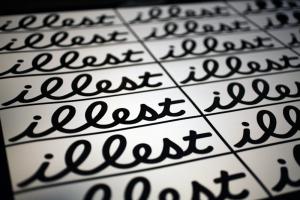 illest illest
illest illest
illest illest
illest illest
illest illest
illest illest
illest illest
illest